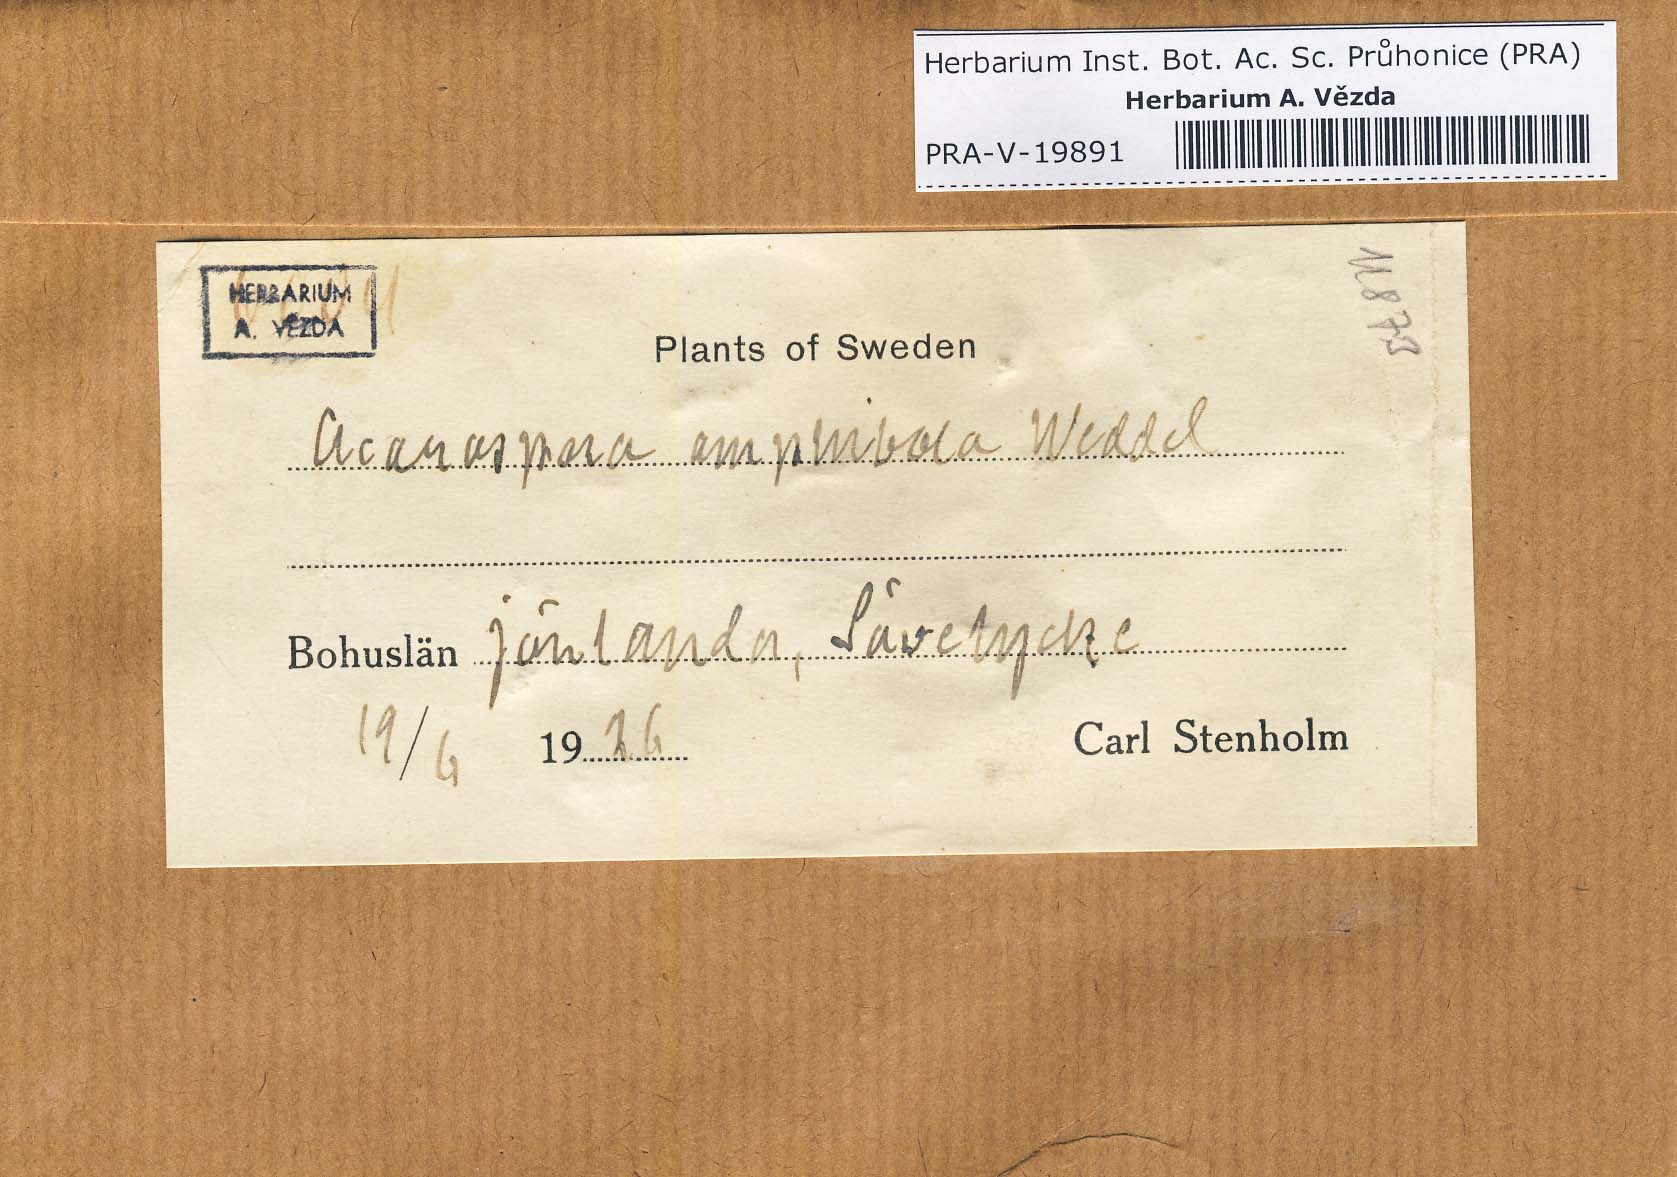 Herbarium Inst. Bot. Ac. Sc. Průhonice (PRA)
Herbarium A. Vězda
PRA-V-19891
HERBARIUM
A. VĚZDA
11873
Plants of Sweden
Acarospora amphibola Weddel
Bohuslän Jörlanda, Sävelycke
19/6 1926 Carl Stenholm